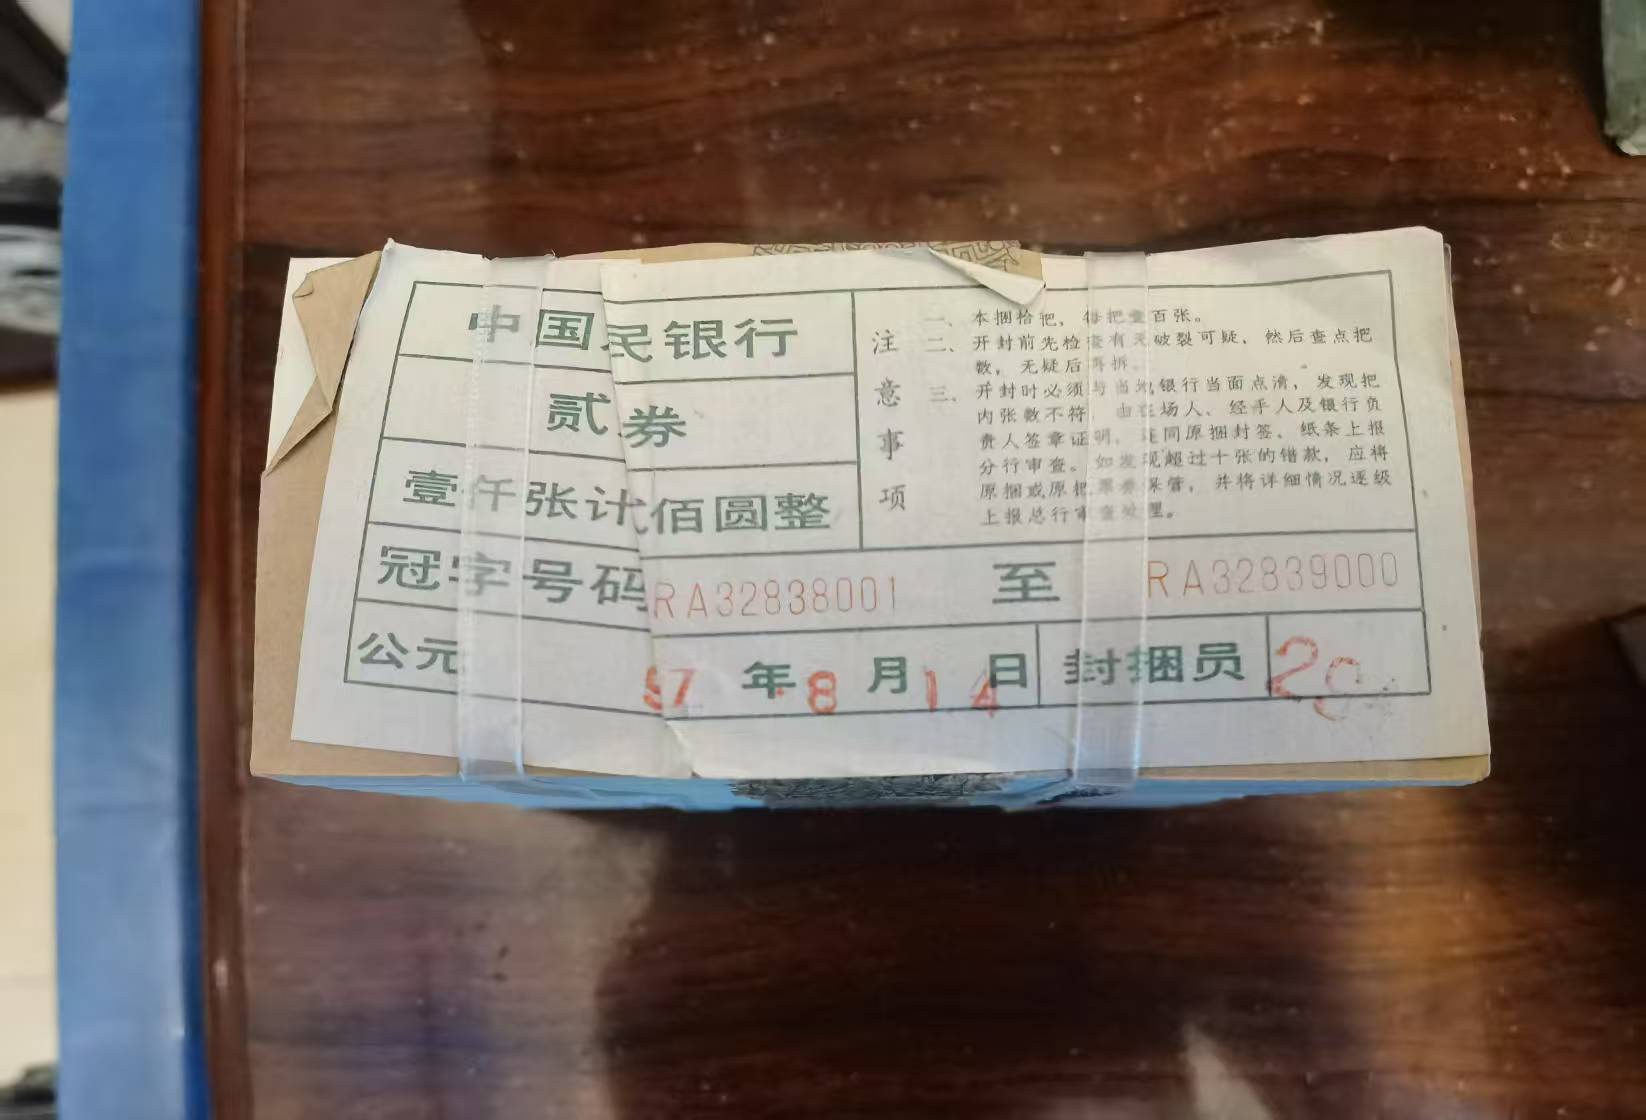 中国民银行
贰券
壹仟张计佰圆整
注意事项
一、本捆拾把，每把壹百张。
二、开封前先检查有无破裂可疑，然后查点把
数，无疑后再拆。
三、开封时必须与当地银行当面点清，发现把
内张数不符，由在场人、经手人及银行负
责人签章证明，连同原捆封签、纸条上报
分行审查。如发现超过十张的错款，应将
原捆或原把票券保管，并将详细情况逐级
上报总行审查处理。
冠字号码RA32838001 至 RA32839000
公元 97 年 8 月 14 日 封捆员